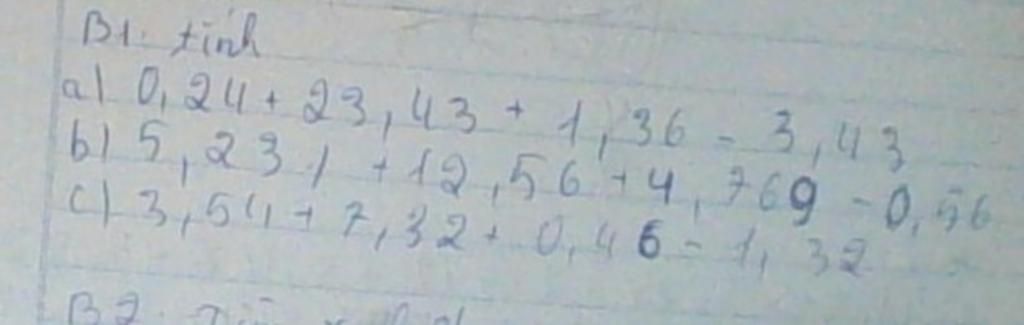 B1. tính
a) 0,24 + 23,43 + 1,36 - 3,43
b) 5,231 + 12,56 + 4,769 - 0,56
c) 3,54 + 7,32 + 0,46 - 1,32
B2.